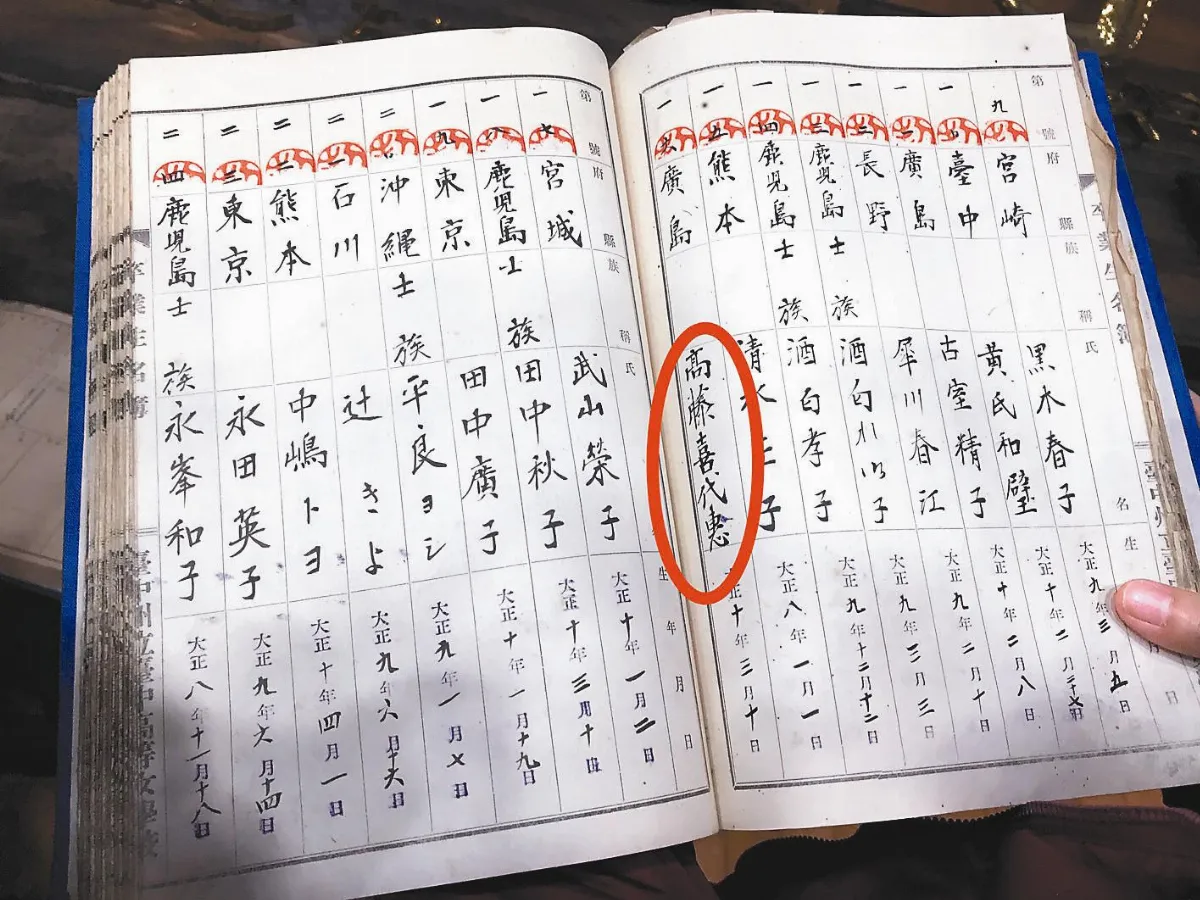 卒業生名簿 臺中州立臺中
第 號 府縣族稱 氏名 生年月日
九 宮崎 黒木春子 大正九年三月五日
一〇 臺中 黃氏和璧 大正十年二月二十七日
一一 廣島 古室精子 大正十年二月八日
一二 長野 犀川春江 大正九年二月十日
一三 鹿児島士族 酒匂 子 大正九年三月三日
一四 鹿児島士族 酒匂孝子 大正九年十二月十二日
一五 熊本 清水 子 大正八年一月一日
一六 廣島 高藤喜代惠 大正十年三月十日
第 號 府縣族稱 氏 生年月日
一七 宮城 武山榮子 大正十年一月二日
一八 鹿児島士族 田中秋子 大正十年三月十日
一九 東京 田中廣子 大正十年一月十九日
二〇 沖縄士族 平良ヨシ 大正九年一月七日
二一 石川 辻きよ 大正九年六月十六日
二二 熊本 中嶋トヨ 大正十年四月一日
二三 東京 永田英子 大正九年六月十四日
二四 鹿児島士族 永峯和子 大正八年十一月十八日
卒業生名簿 臺中州立臺中高等女學校